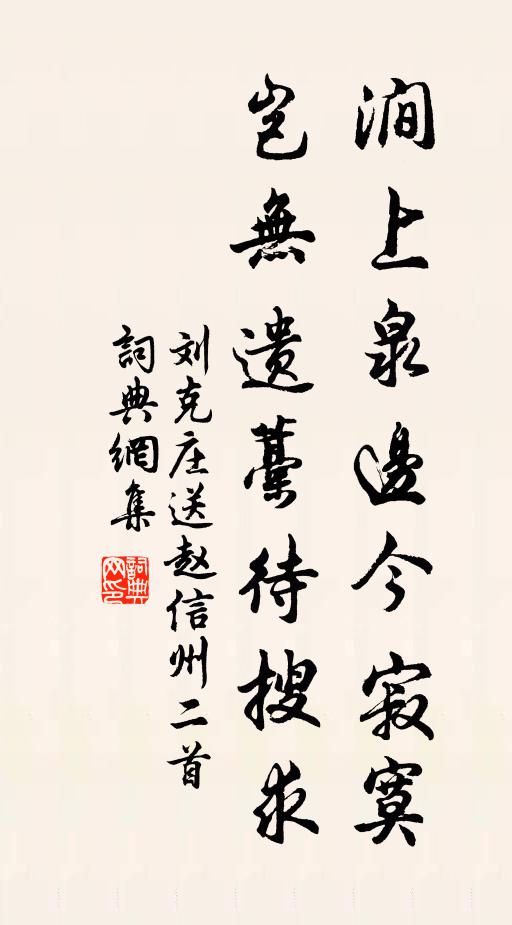 澗上泉邊今寂寞
豈無遗藁待搜求
刘克庄送赵信州二首
詞典網集
詞典網印